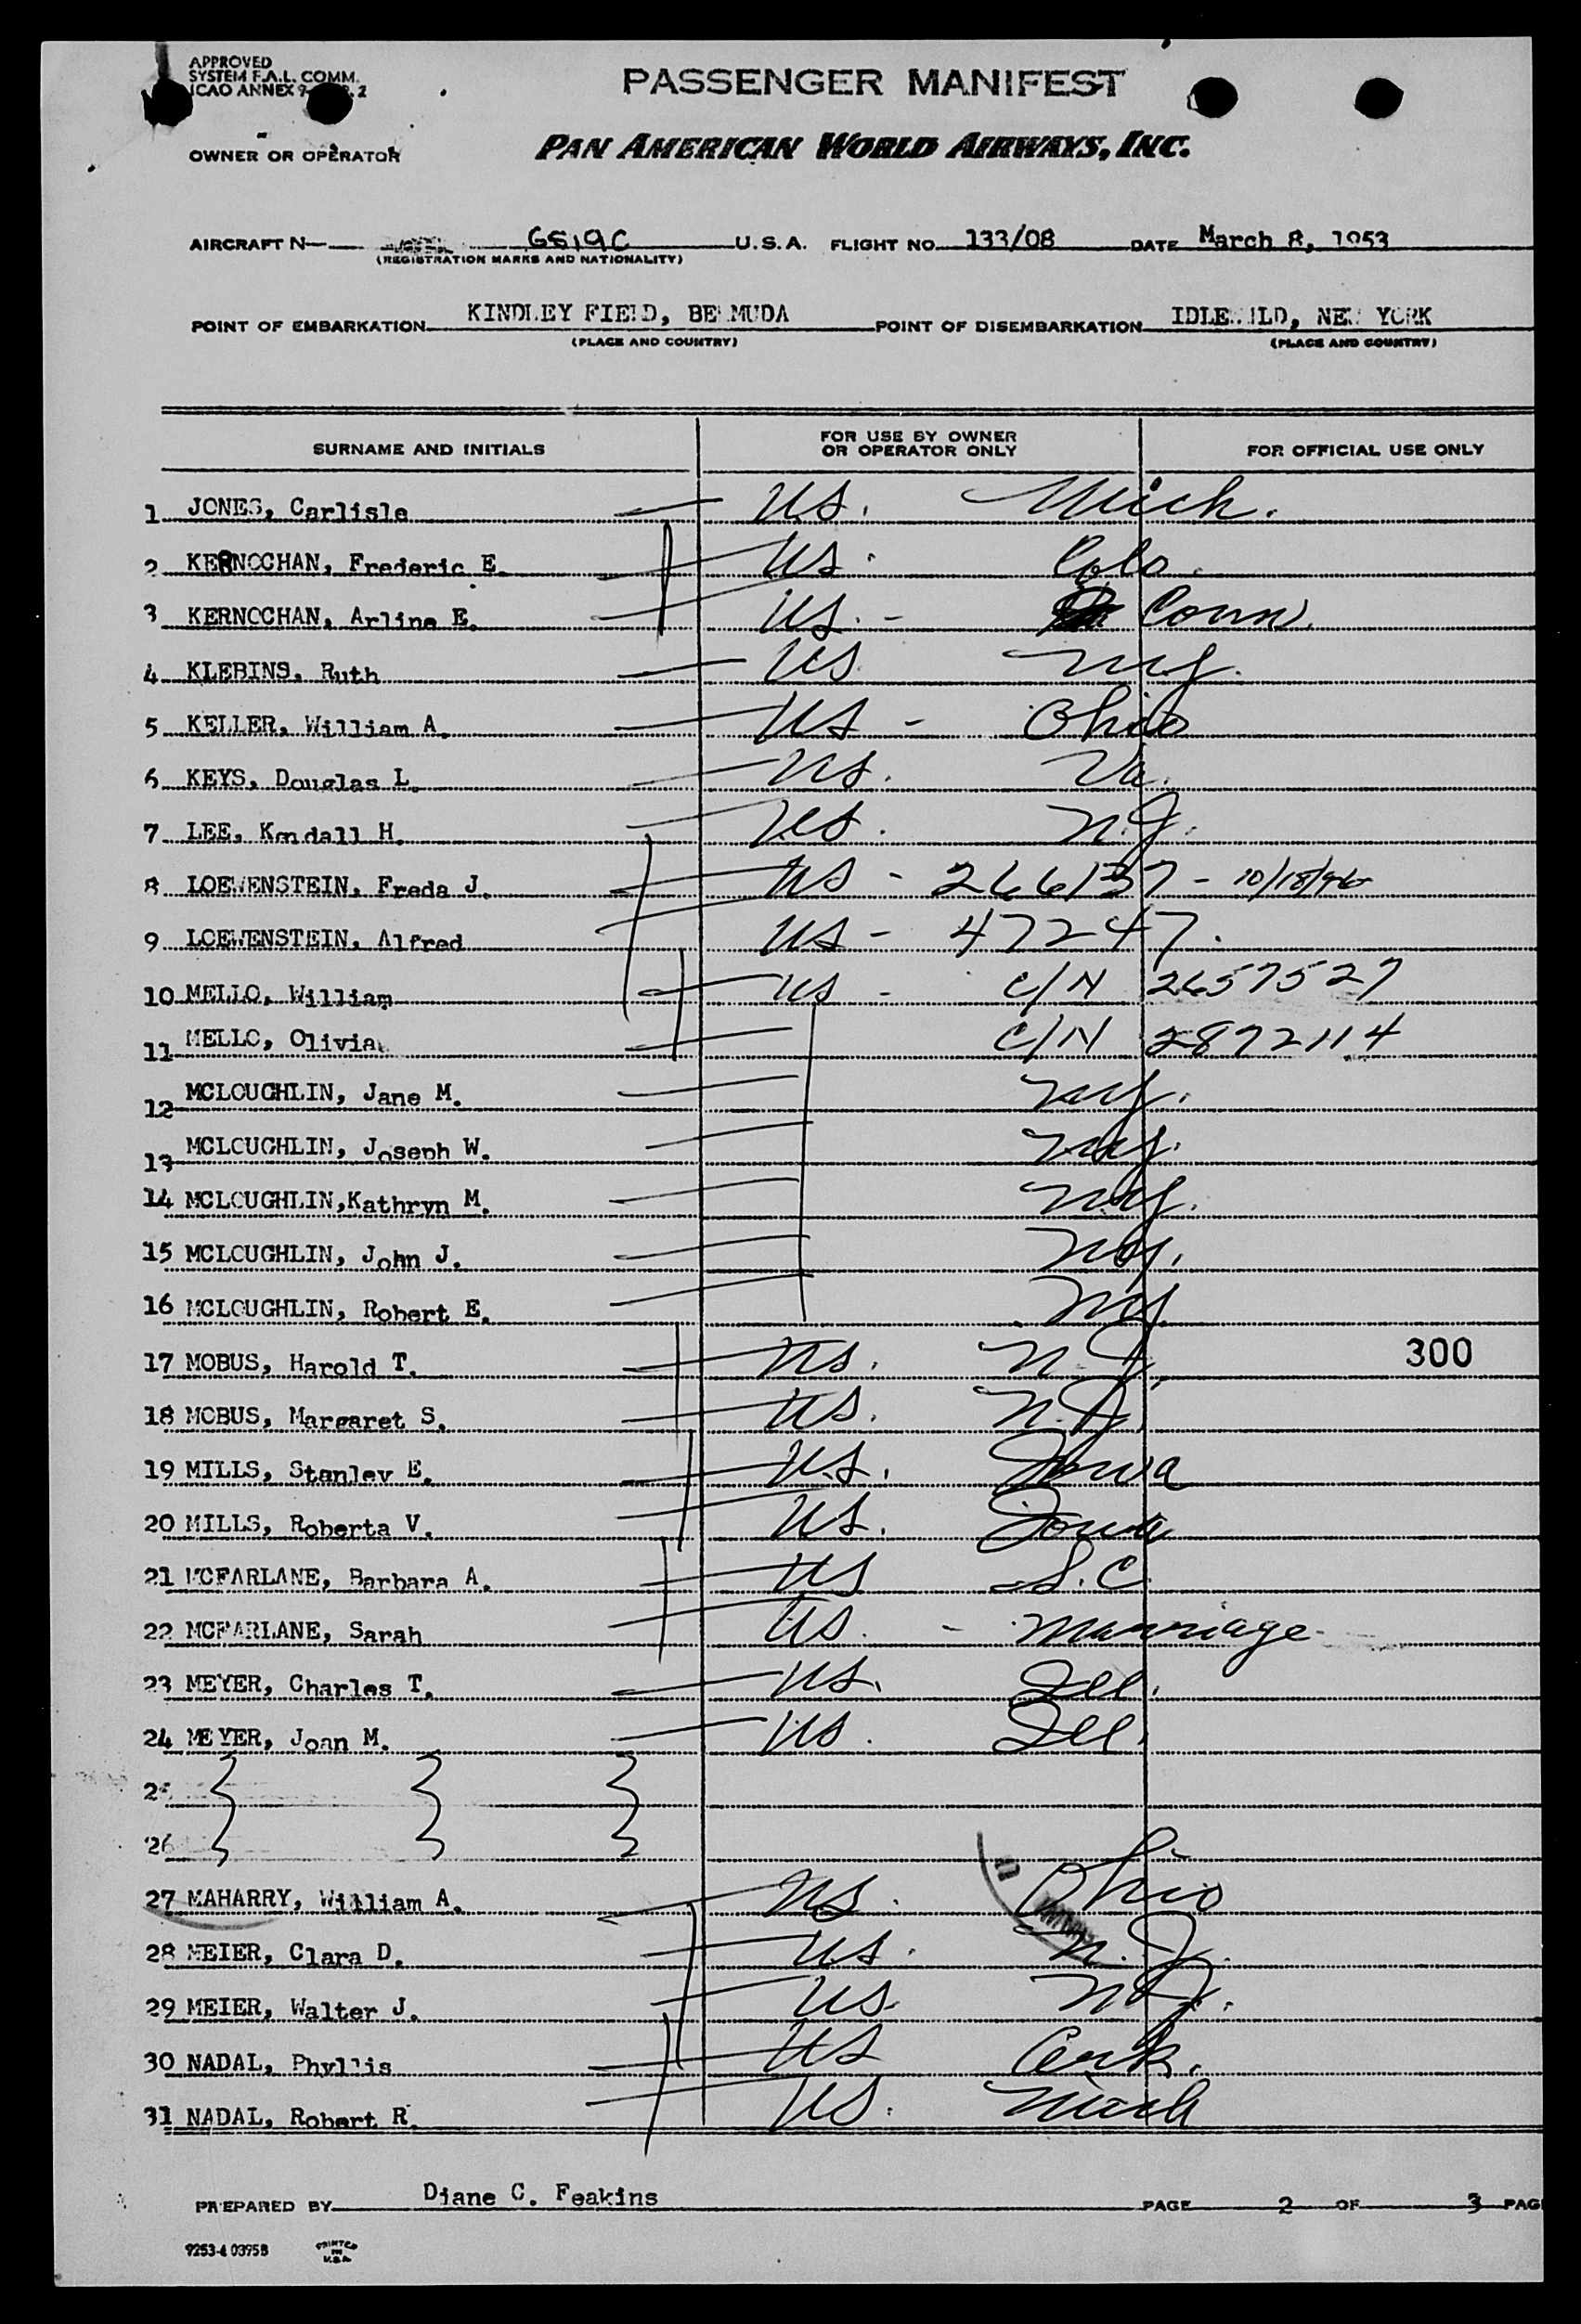 APPROVED
SYSTEM F.A.L. COMM.
ICAO ANNEX 9 2
PASSENGER MANIFEST
OWNER OR OPERATOR PAN AMERICAN WORLD AIRWAYS, INC.
AIRCRAFT N U.S.A. FLIGHT NO. 133/08 DATE March 8, 1953
(REGISTRATION MARKS AND NATIONALITY)
POINT OF EMBARKATION KINDLEY FIELD, BERMUDA POINT OF DISEMBARKATION IDLEWILD, NEW YORK
(PLACE AND COUNTRY) (PLACE AND COUNTRY)
SURNAME AND INITIALS FOR USE BY OWNER OR OPERATOR ONLY FOR OFFICIAL USE ONLY
1 JONES, Carlisle US. Mich.
2 KERNOCHAN, Frederic E. US. Colo.
3 KERNOCHAN, Arline E. US. - Conn.
4 KLEBINS, Ruth US NY.
5 KELLER, William A. US - Ohio
6 KEYS, Douglas L. US. Va.
7 LEE, Kendall H. US. N.J.
8 LOEWENSTEIN, Freda J. US - 266137 -
9 LOEWENSTEIN, Alfred US - 47247.
10 MELLO, William US - C/N 2657527
11 MELLO, Olivia C/N 2872114
12 MCLOUGHLIN, Jane M. NY.
13 MCLOUGHLIN, Joseph W. NY.
14 MCLOUGHLIN, Kathryn M. NY.
15 MCLOUGHLIN, John J. NY.
16 MCLOUGHLIN, Robert E. NY.
17 MOBUS, Harold T. US. N.J. 300
18 MOBUS, Margaret S. US. N.J.
19 MILLS, Stanley E. US. Iowa
20 MILLS, Roberta V. US. Iowa
21 MCFARLANE, Barbara A. US S.C.
22 MCFARLANE, Sarah US. - Marriage
23 MEYER, Charles T. US. Ill.
24 MEYER, Joan M. US. Ill.
25
26
27 MAHARRY, William A. US. Ohio
28 MEIER, Clara D. US. N.J.
29 MEIER, Walter J. US. N.J.
30 NADAL, Phyllis US Ark.
31 NADAL, Robert R. US. Mich
PREPARED BY Diane C. Feakins PAGE 2 OF 3 PAG
9253-4 0395B PRINTED IN U.S.A.